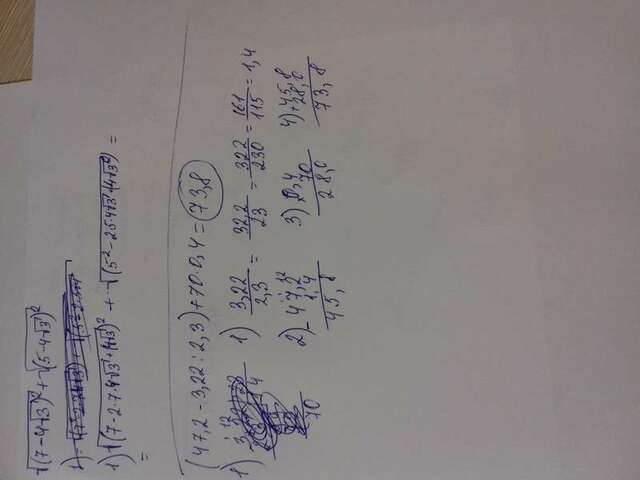 √(7-4√3)² + √(5-4√3)²
1) √(7-2·7·4√3+(4√3)² + √(5²-2·5·4√3+(4√3)²) =
=
(47,2-3,22:2,3)+70·0,4=73,8
1) 3,22/2,3 = 32,2/23 = 322/230 = 161/115 = 1,4
2) - 47,2
1,4
45,8
3) 0,4
70
28,0
4) + 45,8
28,0
73,8
1)
70